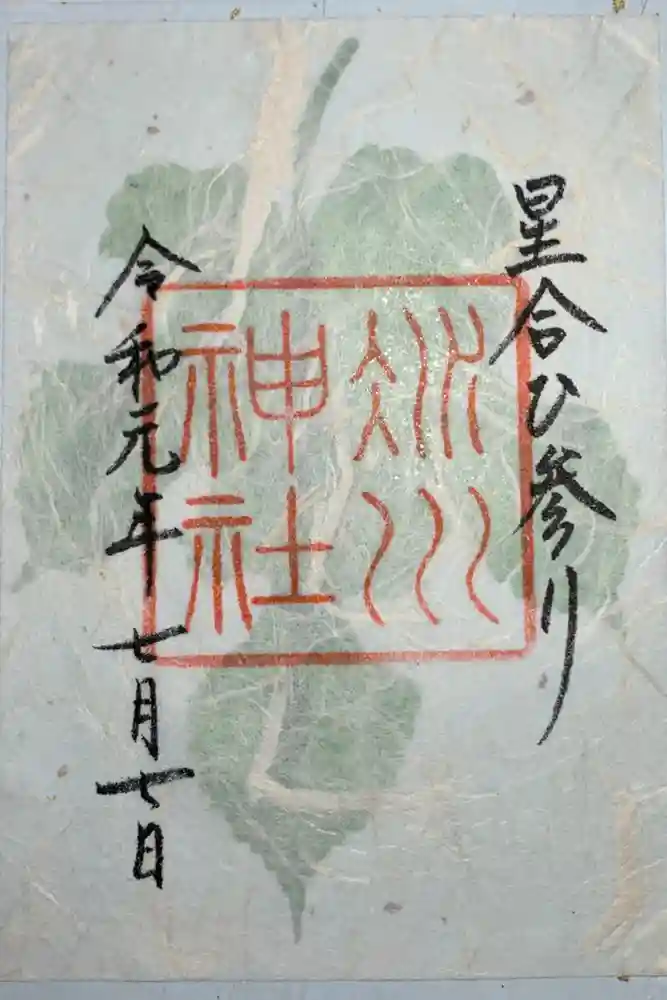 星合ひ参り
氷川
神社
令和元年 七月七日